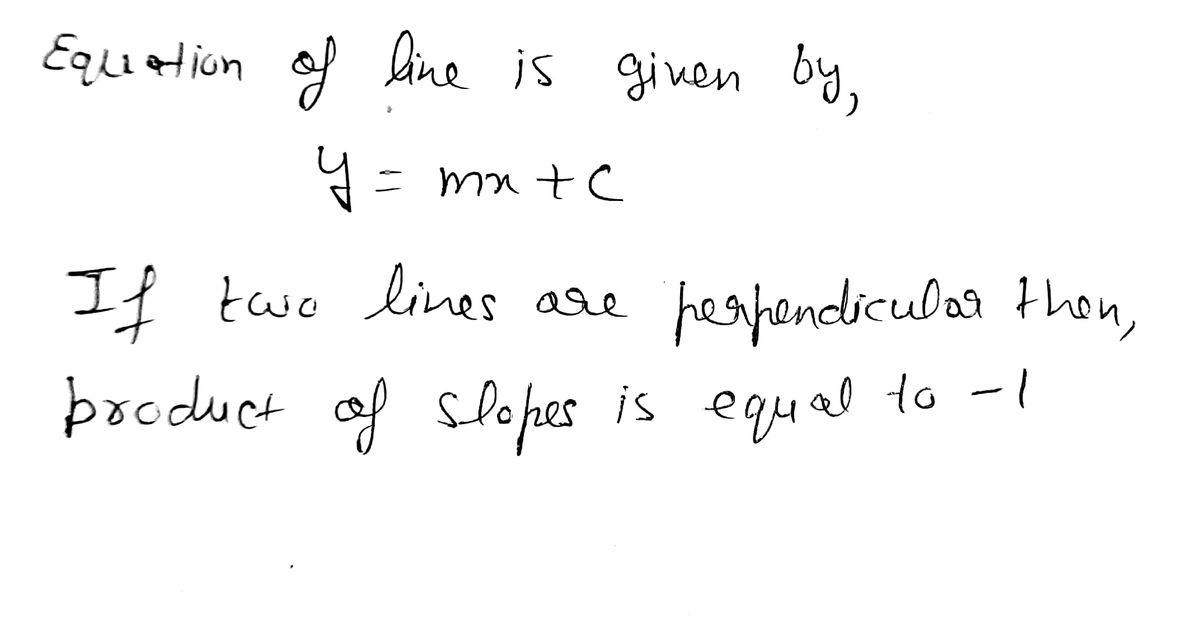 Equation of line is given by,
y = mx + c
If two lines are perpendicular then,
product of slopes is equal to -1